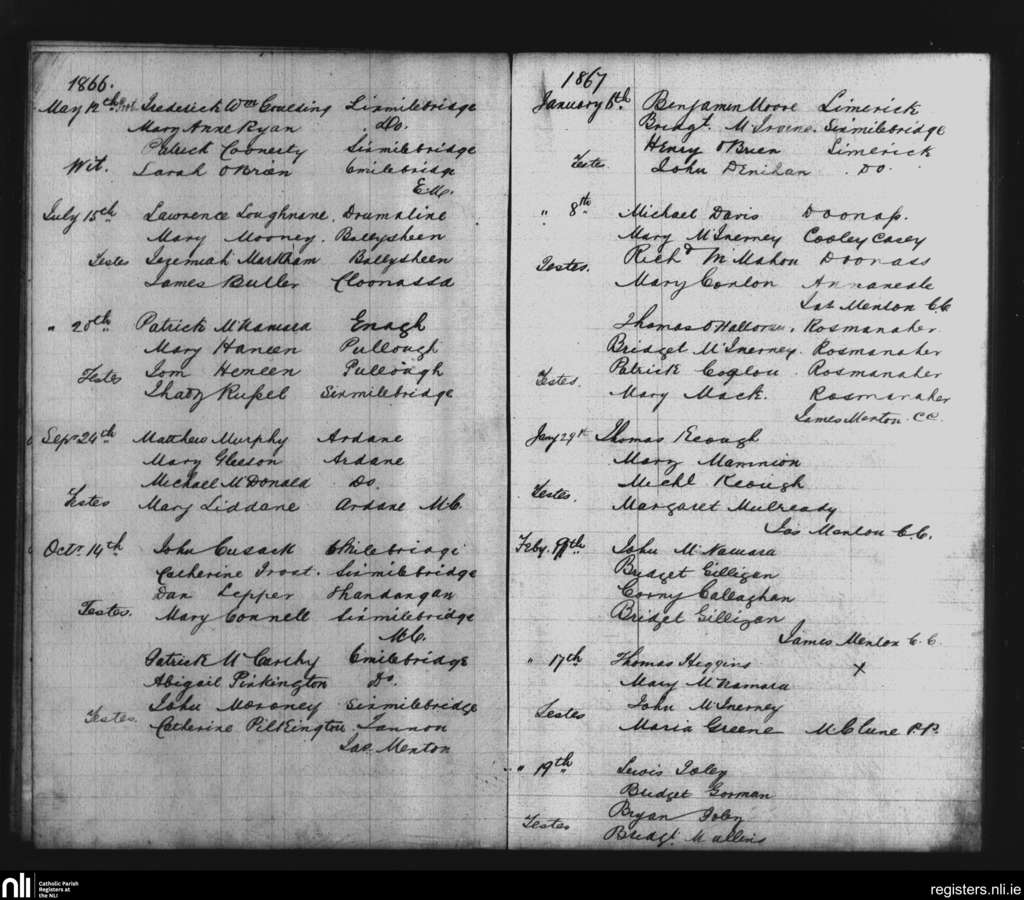 1866.
May 12th Prot. Frederick Wm Goulding Sixmilebridge
Mary Anne Ryan Do.
Patrick Connerty Sixmilebridge
Wit. Sarah OBrien 6milebridge
July 15th Lawrence Loughnane, Drumaline
Mary Mooney. Ballysheen
Testes Jeremiah Markham Ballysheen
James Butler Cloonassa
" 20th Patrick McNamara Enagh
Mary Haneen Pullough
Testes Tom Heneen Pullough
Thady Russel Sixmilebridge
Sepr 24th Matthew Murphy Ardane
Mary Gleeson Ardane
Michael McDonald Do.
Testes Mary Liddane Ardane M.C.
Octr. 14th John Cusack 6Milebridge
Catherine Frost. Sixmilebridge
Dan Lepper Shandangan
Testes. Mary Connell Sixmilebridge
M.C.
Patrick McCarthy 6milebridge
Abigail Pinkington Do.
John Moroney Sixmilebridge
Testes. Catherine Pilkington Lannon
Jas. Menton
1867
January 6th Benjamin Moore Limerick
Bridgt. McIrvine. Sixmilebridge
Henry OBrien Limerick
Teste. John Dinihan Do.
" 8th Michael Davis Doonass.
Mary McInerney Cooleycasey
Testes. Richd McMahon Doonass
Mary Conlon Annaneale
Jas Menton C.C.
Thomas OHalloran. Rosmanaher.
Bridget McInerney. Rosmanaher
Patrick Conlon Rosmanaher
Testes. Mary Mack. Rosmanaher
James Menton. CC.
Jany 29th Thomas Keough
Mary Mannion
Michl Keough
Testes. Margaret Mulready
Jas Menton C.C.
Feby. John McNamara
Bridget Gilligan
Corny Callaghan
Bridget Gilligan
James Menton C.C.
" 17th Thomas Higgins x
Mary McNamara
John McInerney
Testes Maria Greene McClune P.P.
" 19th Lewis Foley
Bridget Gorman
Bryan Foley
Testes Bridgt. Mullins
nli Catholic Parish
Registers at
the NLI
registers.nli.ie